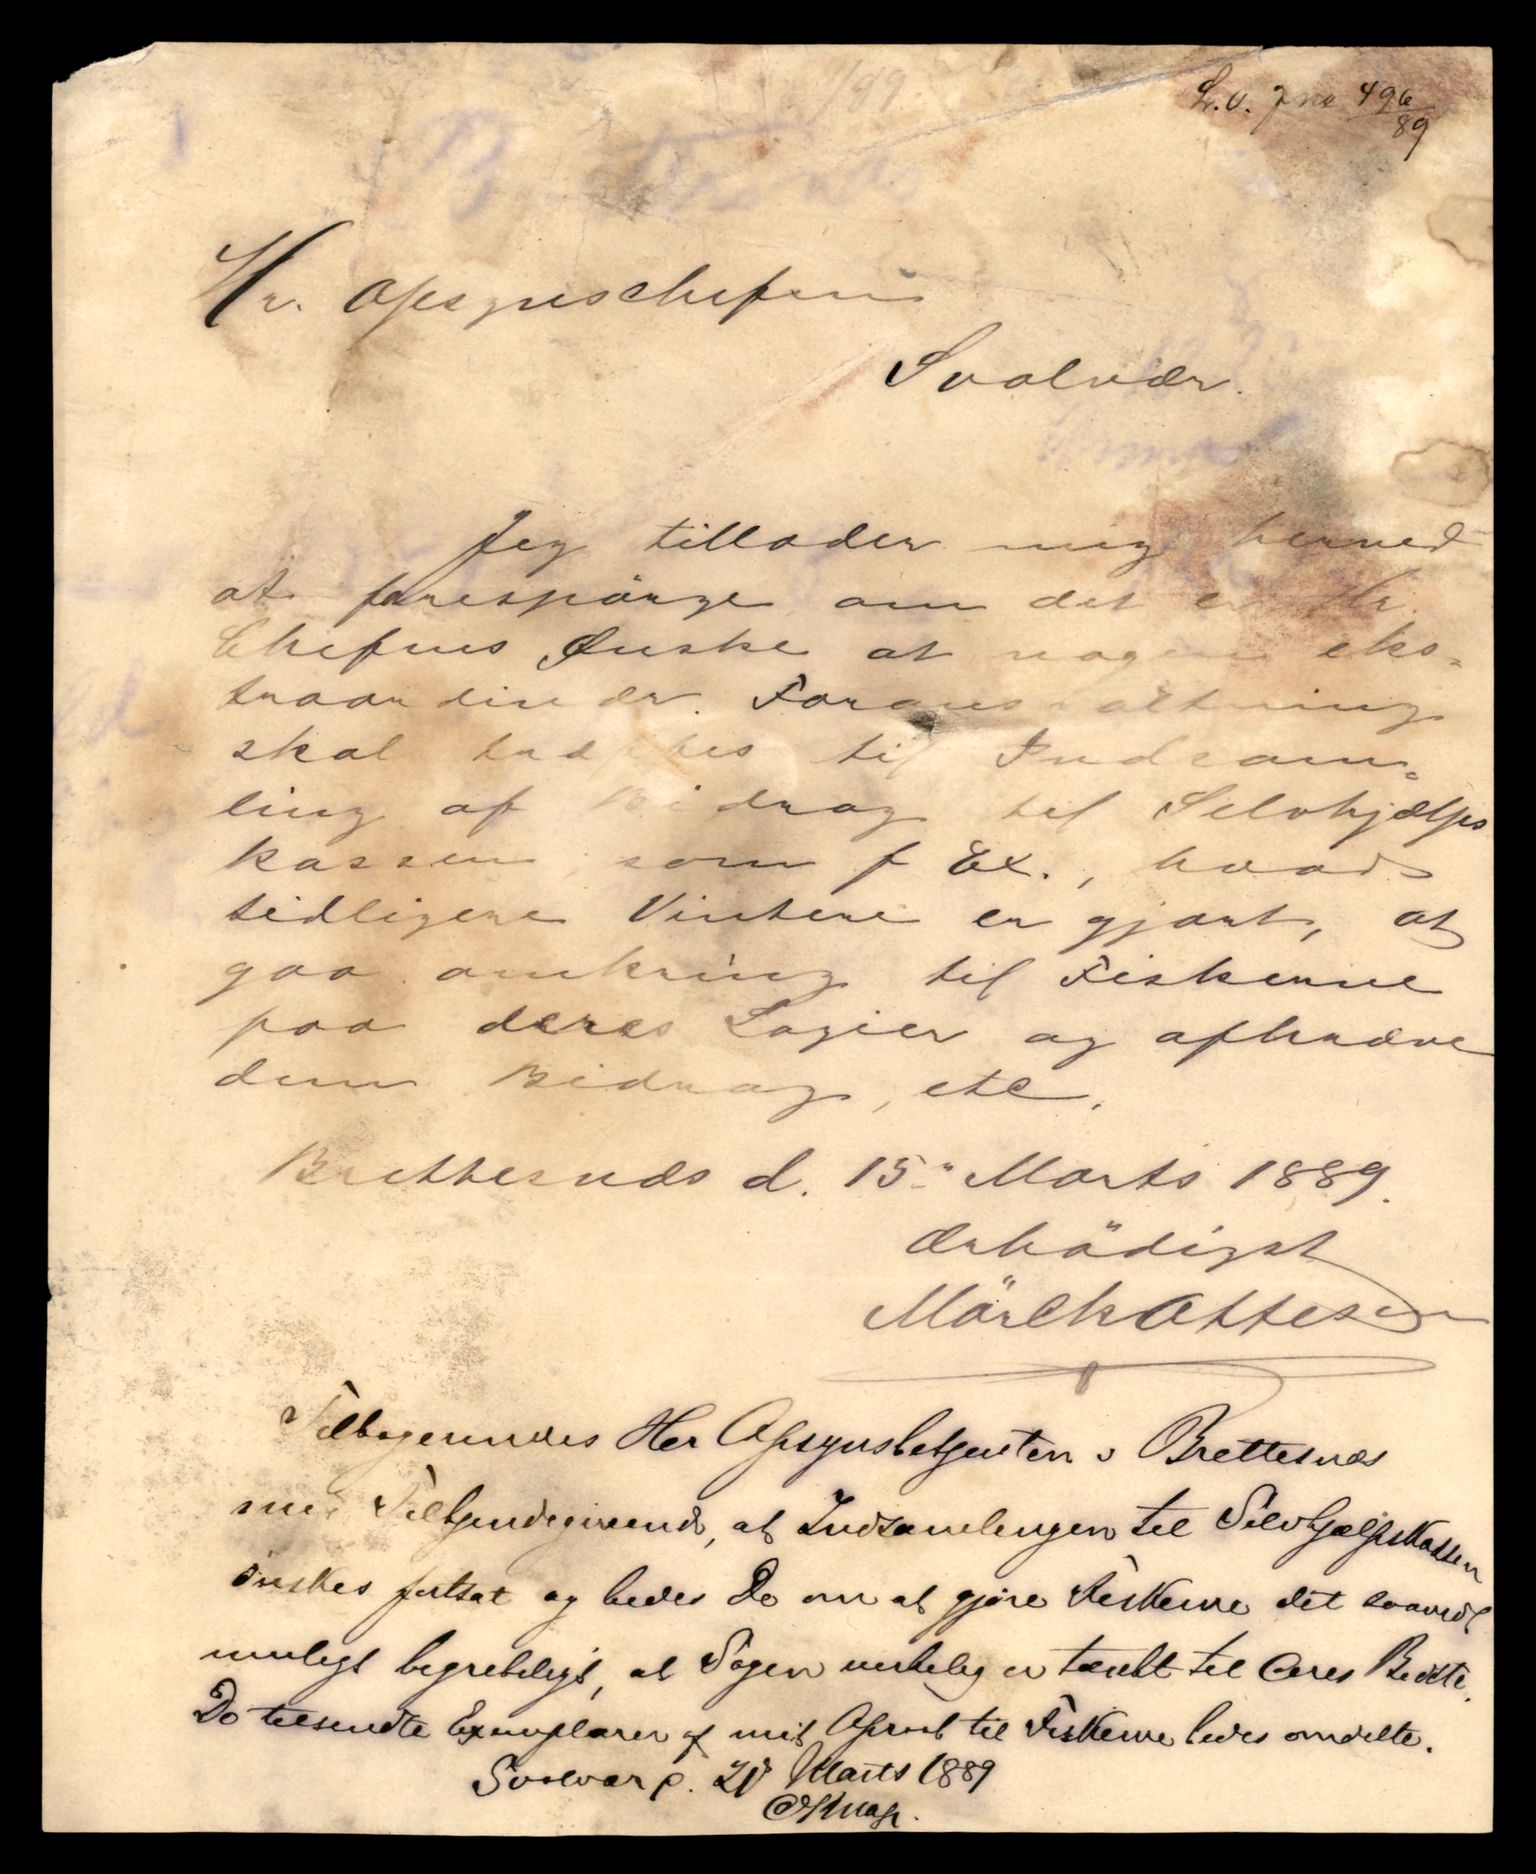 L.O. Jno 496/89
Hr. Opsynschefen
Svolvær.
Jeg tillader mig herved
at forespörge om det er Hr.
Chefens Ønske at nogen eks-
traordinær. Foranstaltning
skal træffes til Indsam-
ling af Bidrag til Selvhjælps
kassen, som f Ex., hvad
tidligere Vintere er gjort, at
gaa omkring til Fiskerne
paa deres Logier og afkræve
dem Bidrag, etc.
Brettesnæs d. 15de Marts 1889.
Ærbödigst
Mörck Ottesen
Tilbagesendes Herr Opsynsbetjenten i Brettesnæs
med Tilkjendegivende, at Indsamlingen til Selvhjælpskassen
önskes fortsat og bedes De om at gjöre Fiskerne det saavidt
muligt begribeligt, at Sagen virkelig er tænkt til deres Bedste.
De tilsendte Exemplarer af mit Opraab til Fiskerne bedes omdelte.
Svolvær p. 21 Marts 1889